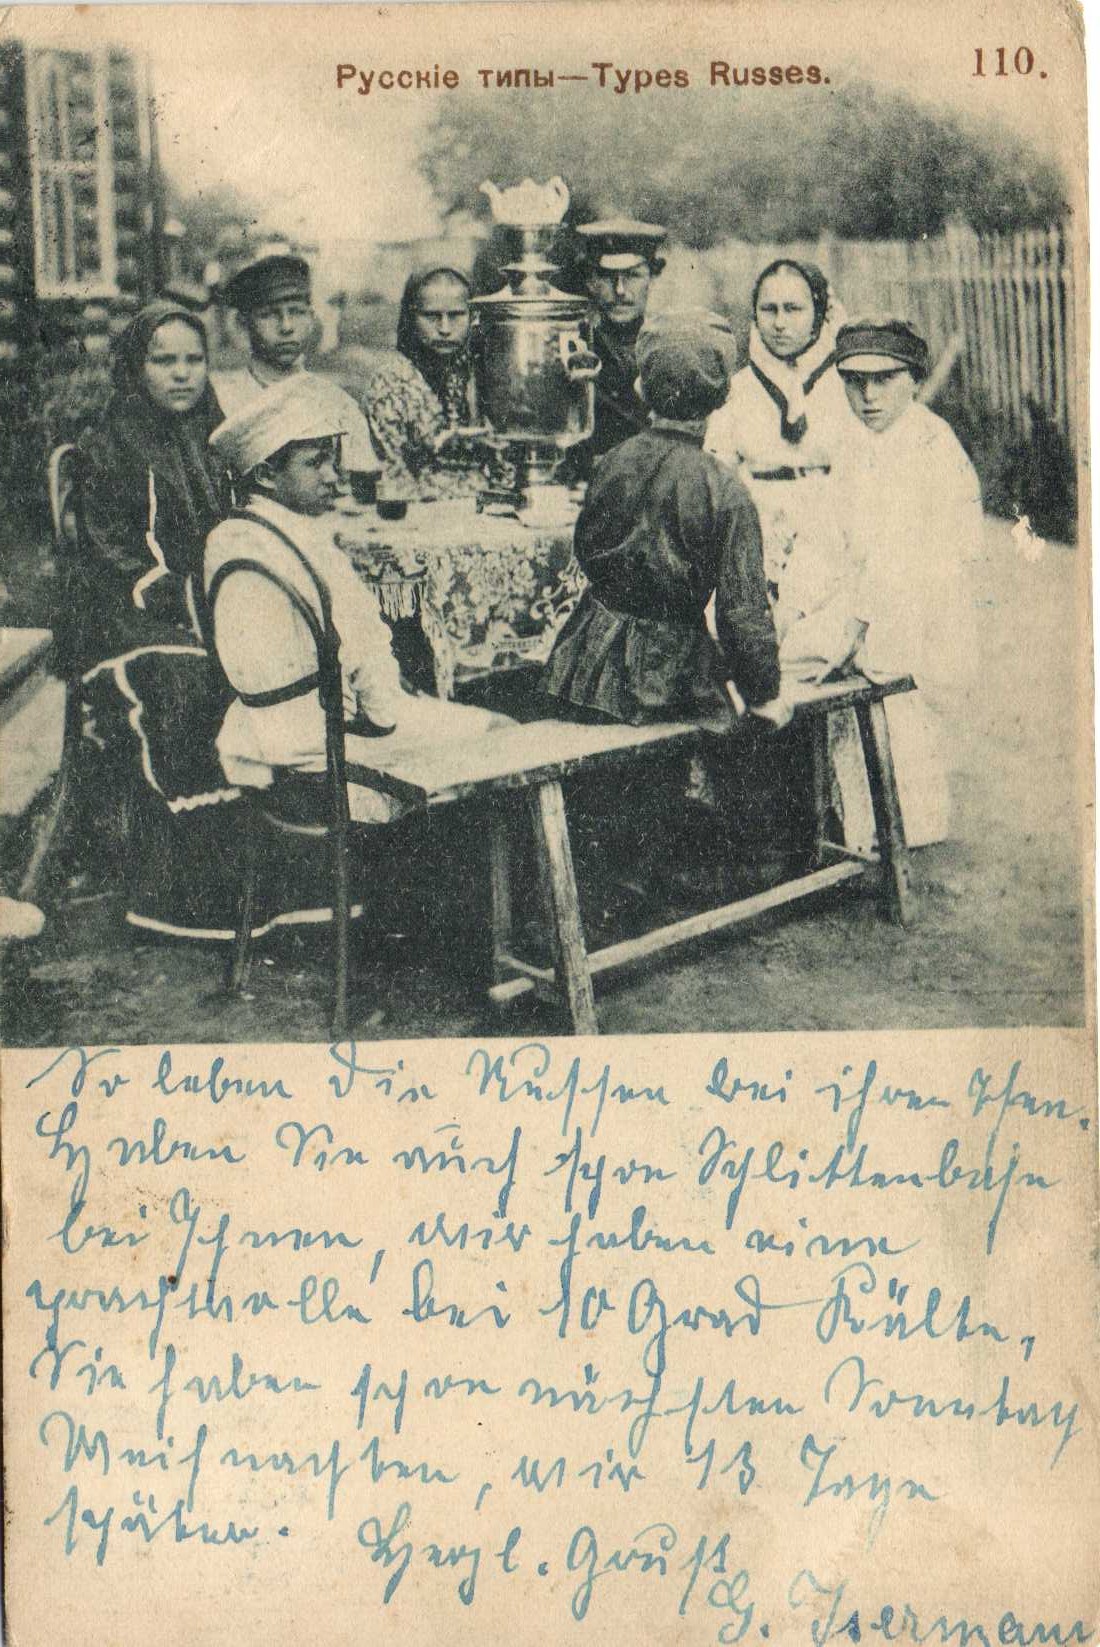 Русскіе типы—Types Russes.
110.
So leben die Russen bei ihren Theen.
Haben Sie auch schon Schlittenbahn
bei Ihnen, wir haben eine
prachtvolle bei 10 Grad Kälte,
Sie haben schon nächsten Sonntag
Weihnachten, wir 13 Tage
später.
Herzl. Gruß
G. Isermann